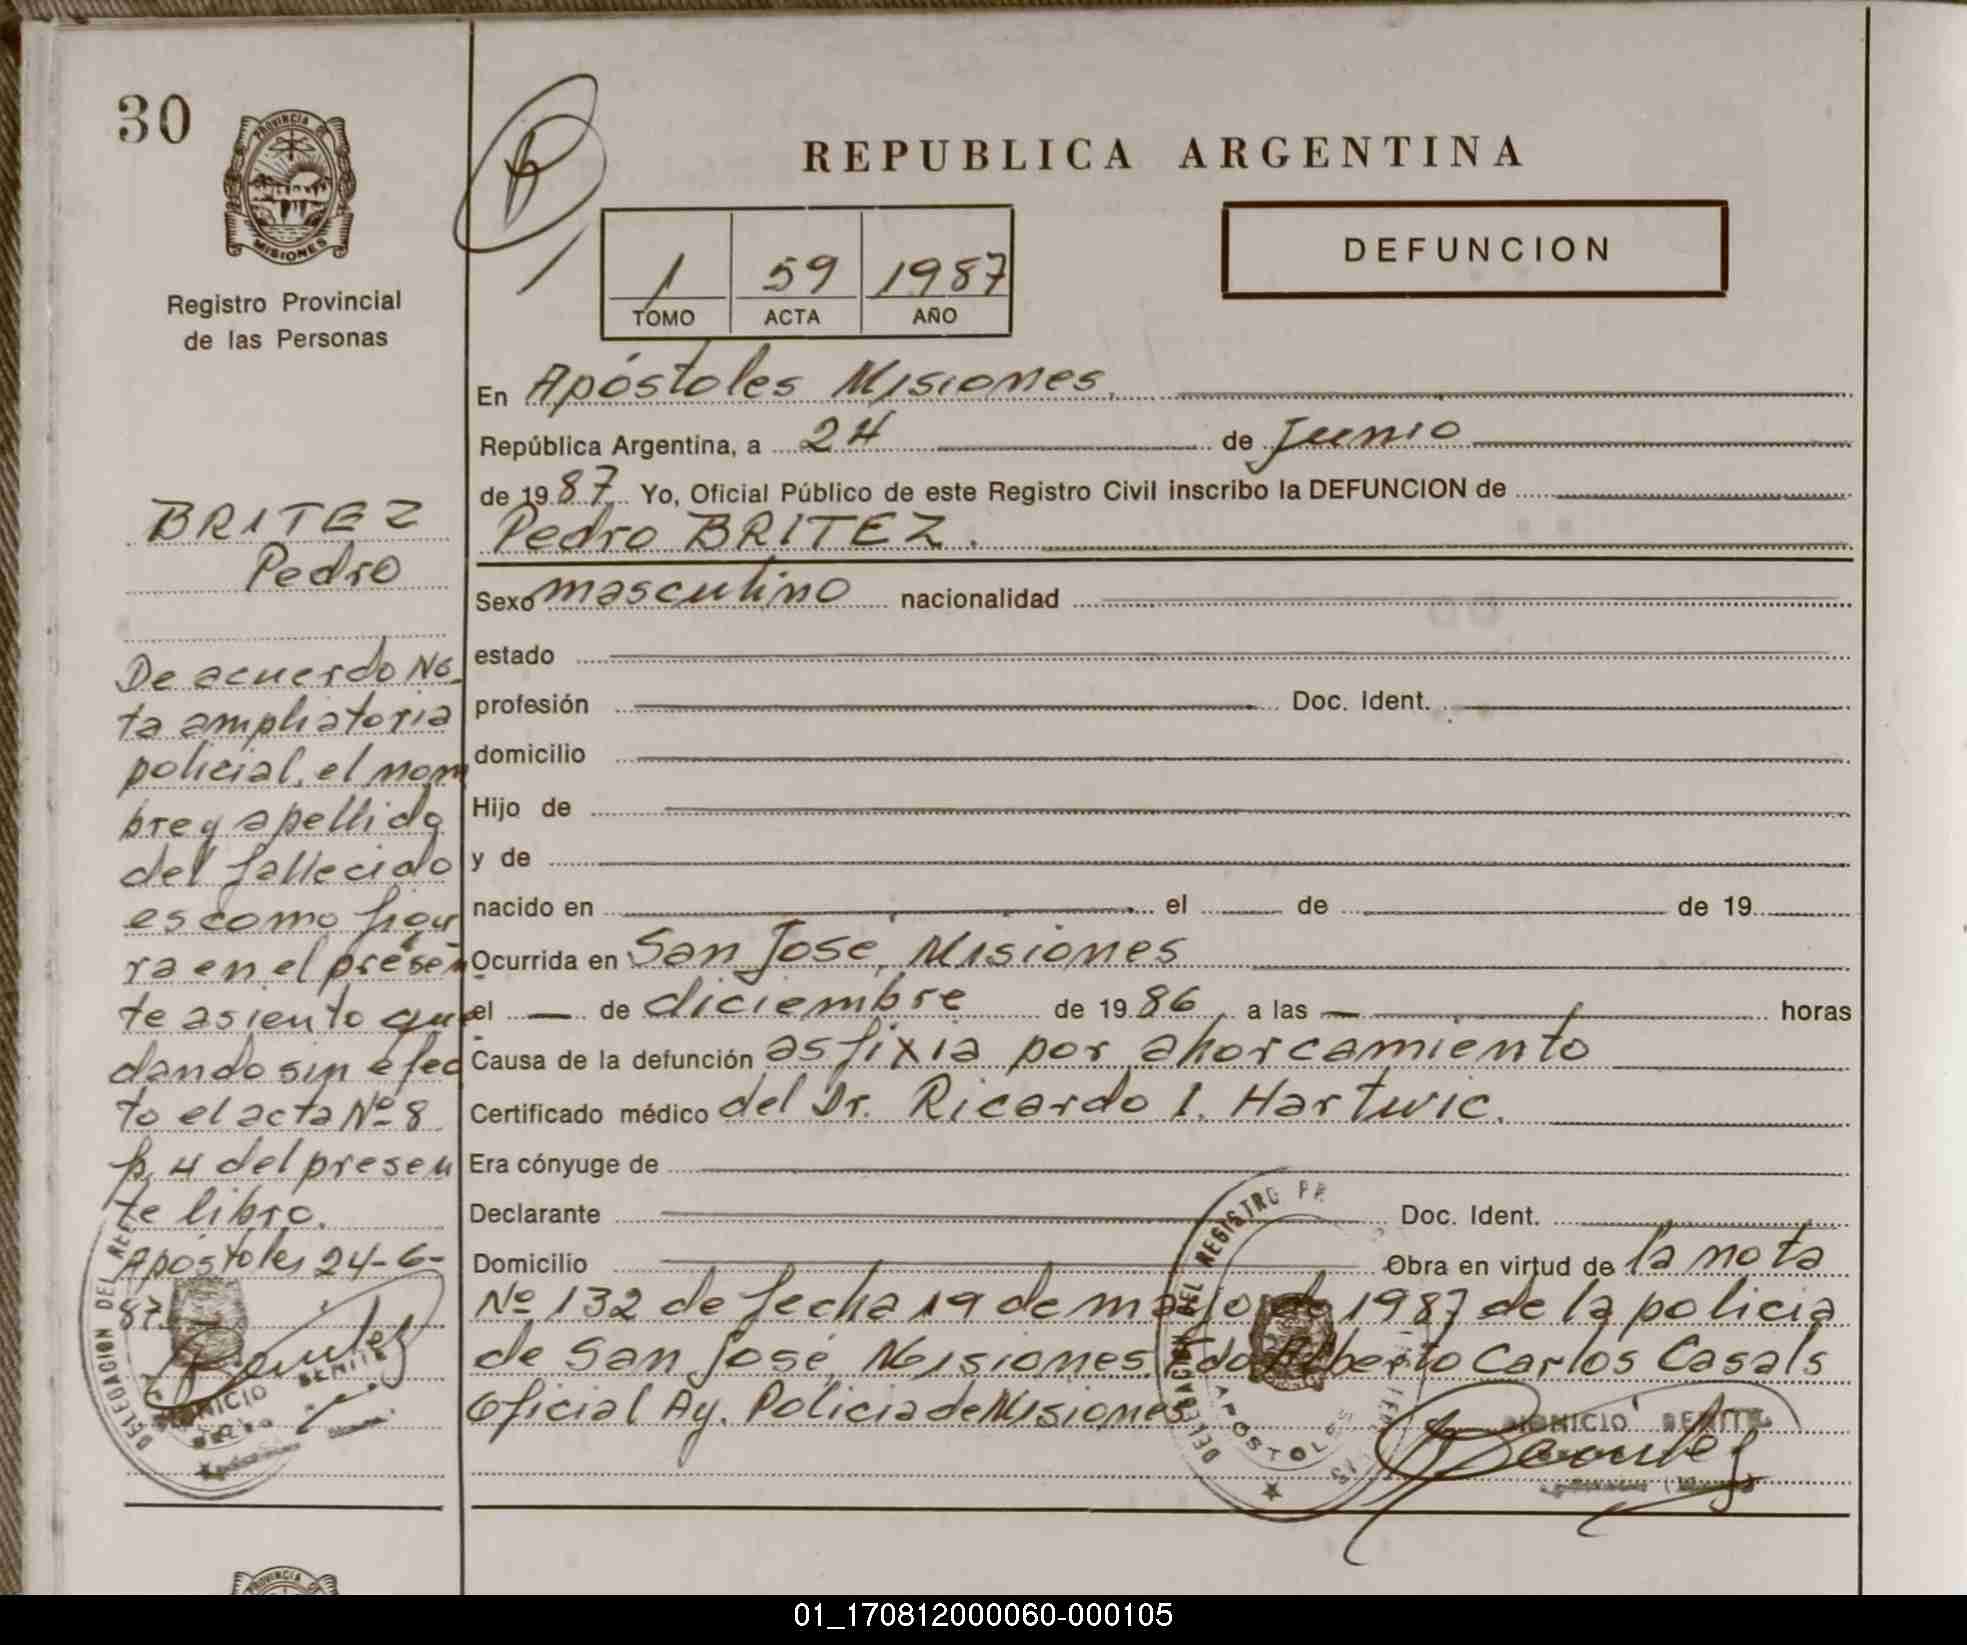 30
PROVINCIA DE
MISIONES
Registro Provincial
de las Personas
BRITEZ
Pedro
De acuerdo No
ta ampliatoria
policial, el nom
bre y apellido
del fallecido
es como figu
ra en el presen
te asiento que
dando sin efec
to el acta Nº 8
f. 4 del presen
te libro.
Apóstoles 24-6-
87.
DELEGACION DEL
REPUBLICA ARGENTINA
DEFUNCION
1 59 1987
TOMO ACTA AÑO
En Apóstoles Misiones.
República Argentina, a 24 de Junio
de 1987 Yo, Oficial Público de este Registro Civil inscribo la DEFUNCION de
Pedro BRITEZ.
Sexo masculino nacionalidad
estado
profesión Doc. Ident.
domicilio
Hijo de
y de
nacido en el de de 19
Ocurrida en San José, Misiones
el — de diciembre de 1986 a las — horas
Causa de la defunción asfixia por ahorcamiento
Certificado médico del Dr. Ricardo I. Hartwic.
Era cónyuge de
Declarante Doc. Ident.
Domicilio Obra en virtud de la nota
Nº 132 de fecha 19 de mayo de 1987 de la policia
de San José, Misiones Fdo Alberto Carlos Casals
Oficial Ay. Policia de Misiones
DELEGACION DEL REGISTRO
APOSTOLES
DIONICIO BENITEZ
PROVINCIA
01_170812000060-000105